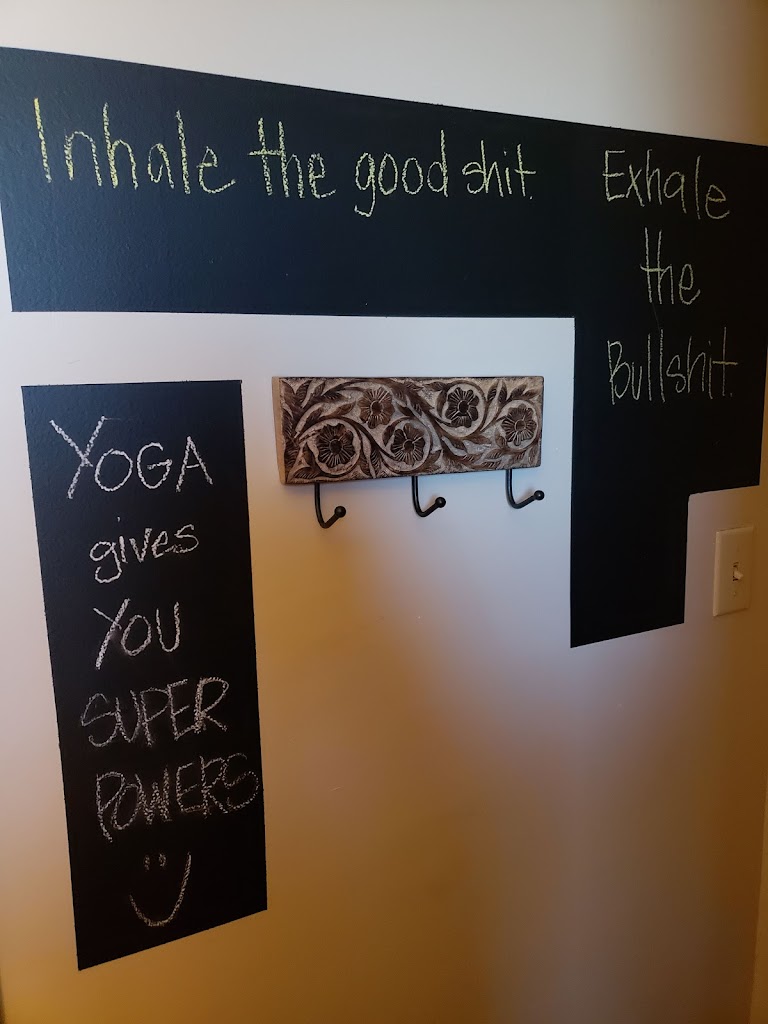 Inhale the good shit.
Exhale
the
Bullshit.
YOGA
gives
YOU
SUPER
POWERS